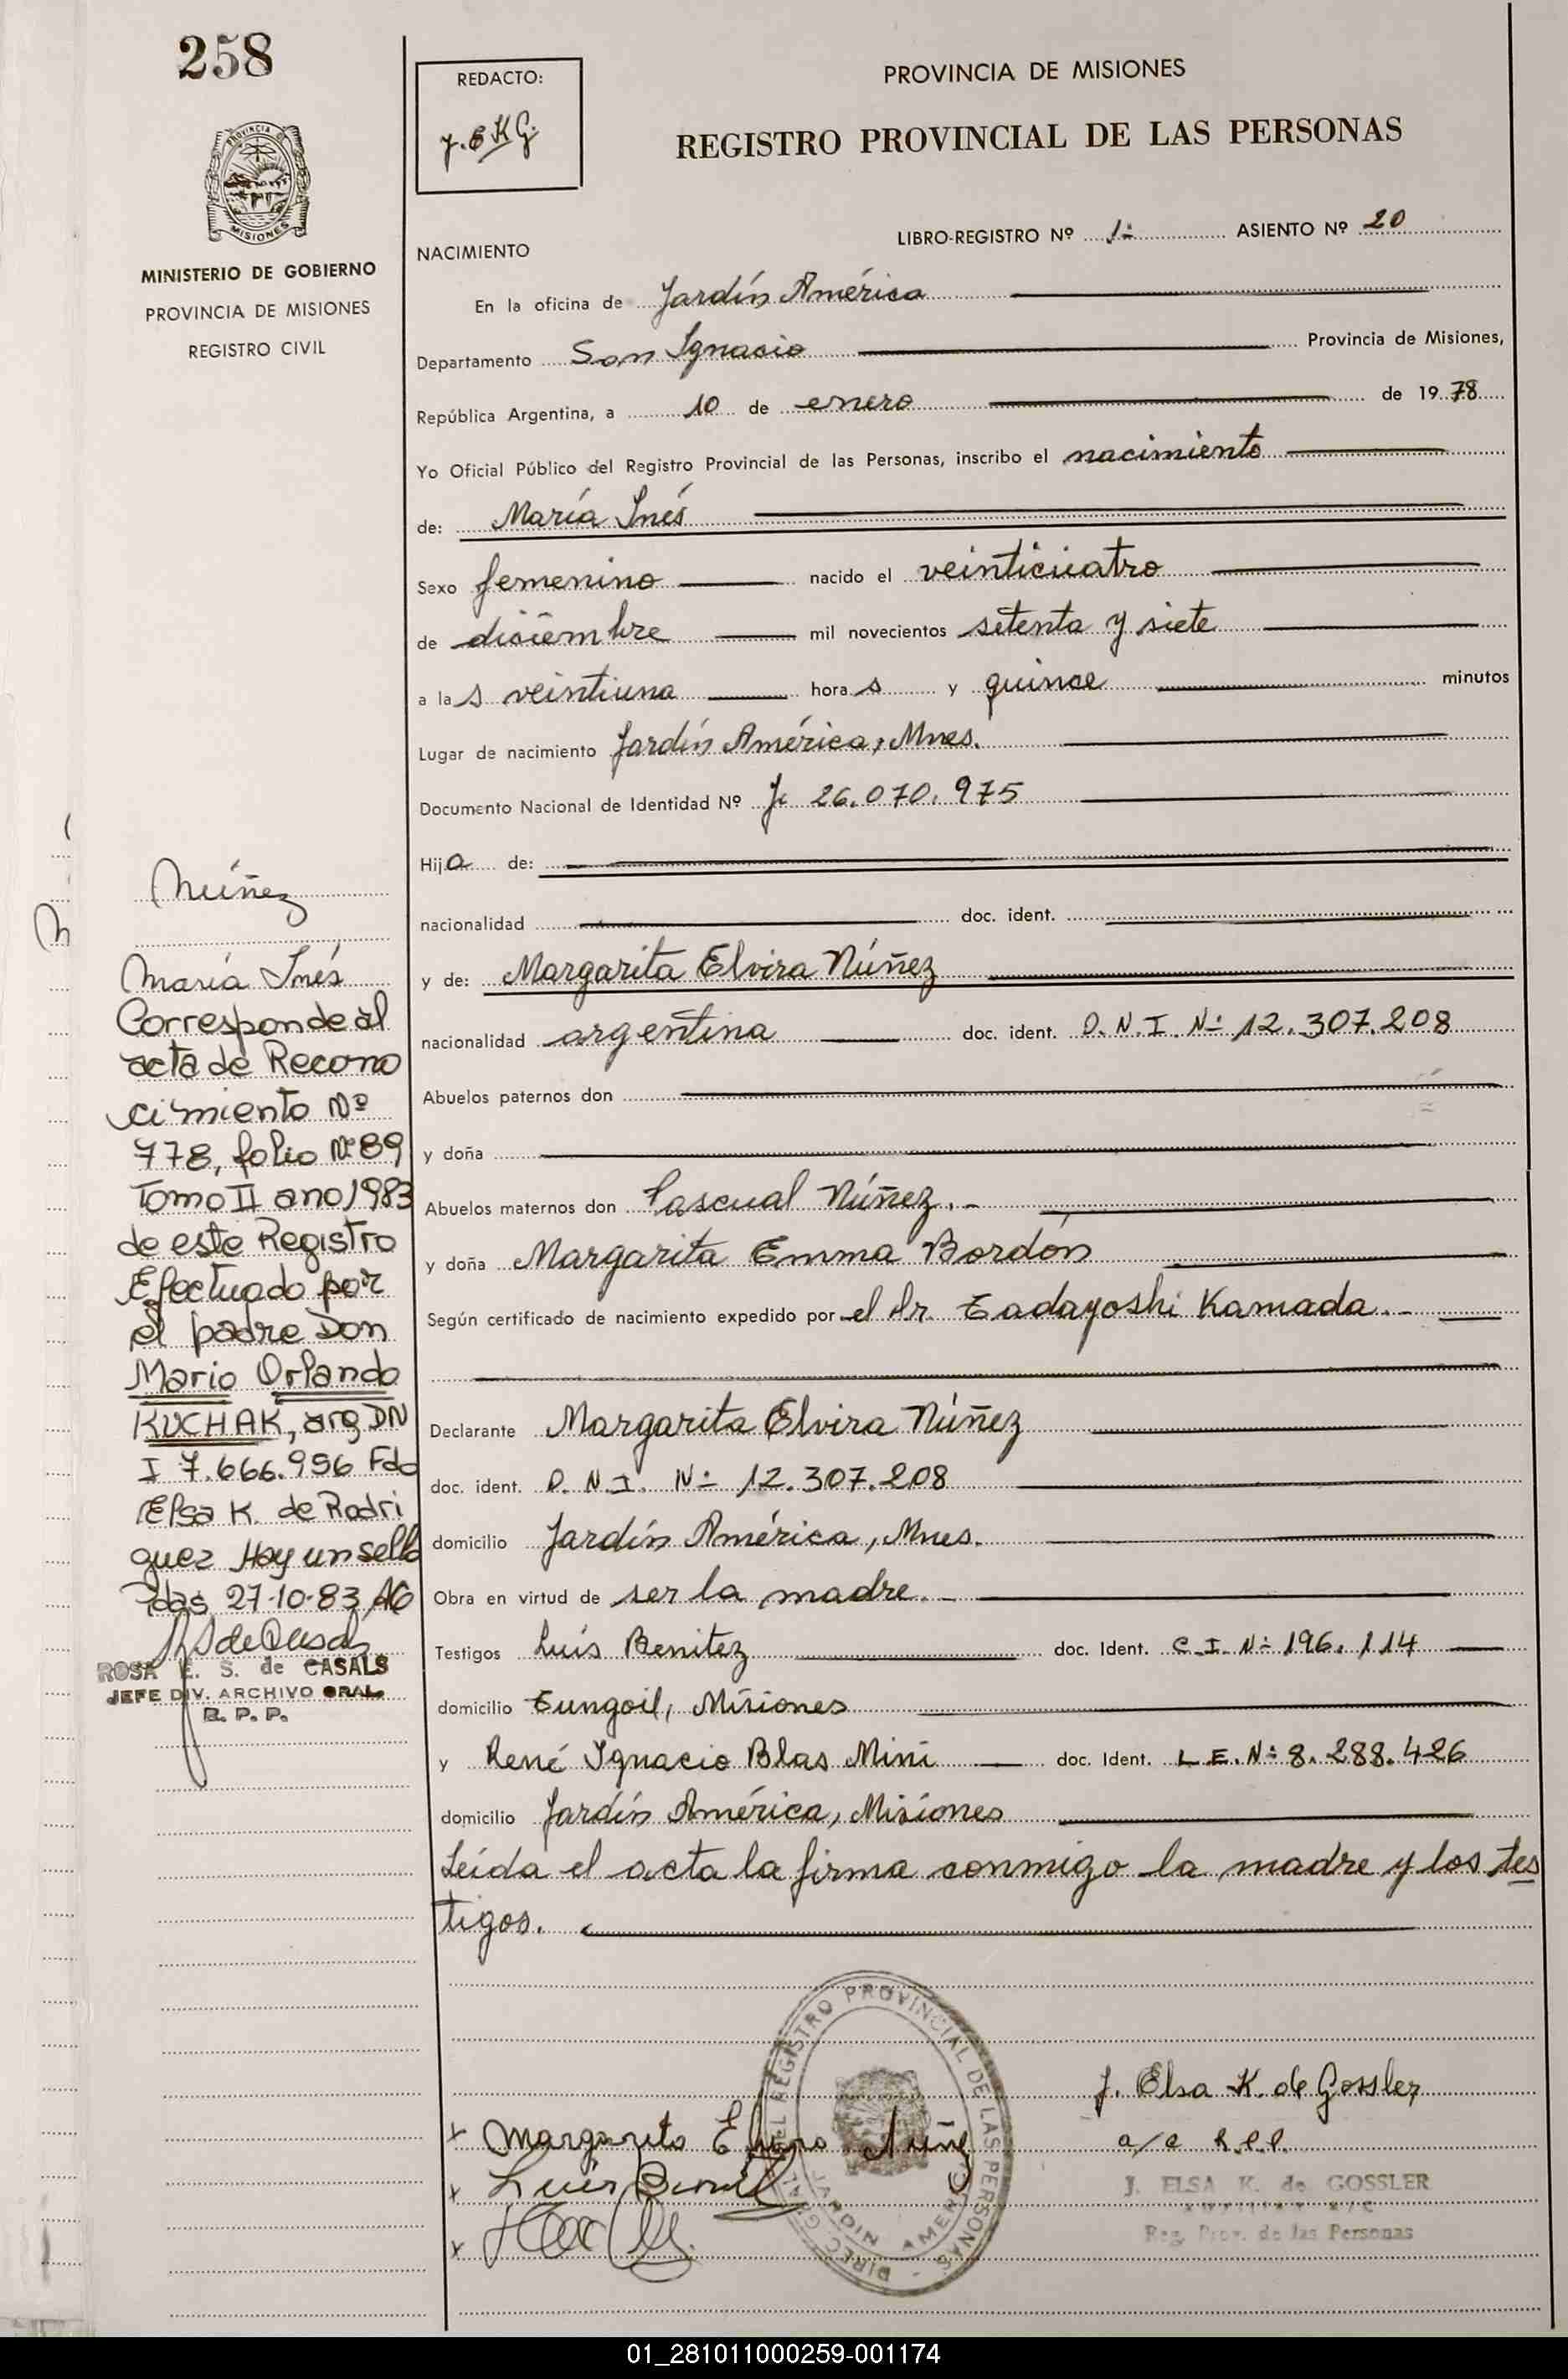 258
PROVINCIA DE MISIONES
MINISTERIO DE GOBIERNO
PROVINCIA DE MISIONES
REGISTRO CIVIL
REDACTO:
J.EKG.
PROVINCIA DE MISIONES
REGISTRO PROVINCIAL DE LAS PERSONAS
NACIMIENTO
LIBRO-REGISTRO Nº 1- ASIENTO Nº 20
En la oficina de Jardín América
Departamento San Ignacio Provincia de Misiones,
República Argentina, a 10 de enero de 1978
Yo Oficial Público del Registro Provincial de las Personas, inscribo el nacimiento
de: María Inés
Sexo femenino nacido el veinticuatro
de diciembre mil novecientos setenta y siete
a las veintiuna horas y quince minutos
Lugar de nacimiento Jardín América, Mnes.
Documento Nacional de Identidad Nº 26.070.975
Hija de:
nacionalidad doc. ident.
y de: Margarita Elvira Núñez
nacionalidad argentina doc. ident. D.N.I. Nº 12.307.208
Abuelos paternos don
y doña
Abuelos maternos don Pascual Núñez.-
y doña Margarita Emma Bordón
Según certificado de nacimiento expedido por el Dr. Tadayoshi Kamada.-
Declarante Margarita Elvira Núñez
doc. ident. D.N.I. Nº 12.307.208
domicilio Jardín América, Mnes.
Obra en virtud de ser la madre.-
Testigos Luís Benitez doc. Ident. C.I. Nº 196.114
domicilio Tungoil, Misiones
y René Ignacio Blas Mini doc. Ident. L.E. Nº 8.288.426
domicilio Jardín América, Misiones
Leída el acta la firma conmigo la madre y los tes
tigos.
Núñez
María Inés
Corresponde al
acta de Recono
cimiento Nº
778, folio Nº 89
Tomo II ano 1983
de este Registro
Efectuado por
el padre Don
Mario Orlando
KUCHAK, arg DN
I 7.666.956 Fdo
Elsa K. de Rodri
guez Hay un sello
Pdas 27-10-83 AG
ROSA E. S. de CASALS
JEFE DIV. ARCHIVO GRAL.
R. P. P.
DIREC. GRAL. DEL REGISTRO PROVINCIAL DE LAS PERSONAS
JARDIN AMERICA
x Margarita Elvira Núñez
x Luis Benitez
x
J. Elsa K. de Gossler
a/c R.P.P.
J. ELSA K. de GOSSLER
Reg. Prov. de las Personas
01_281011000259-001174